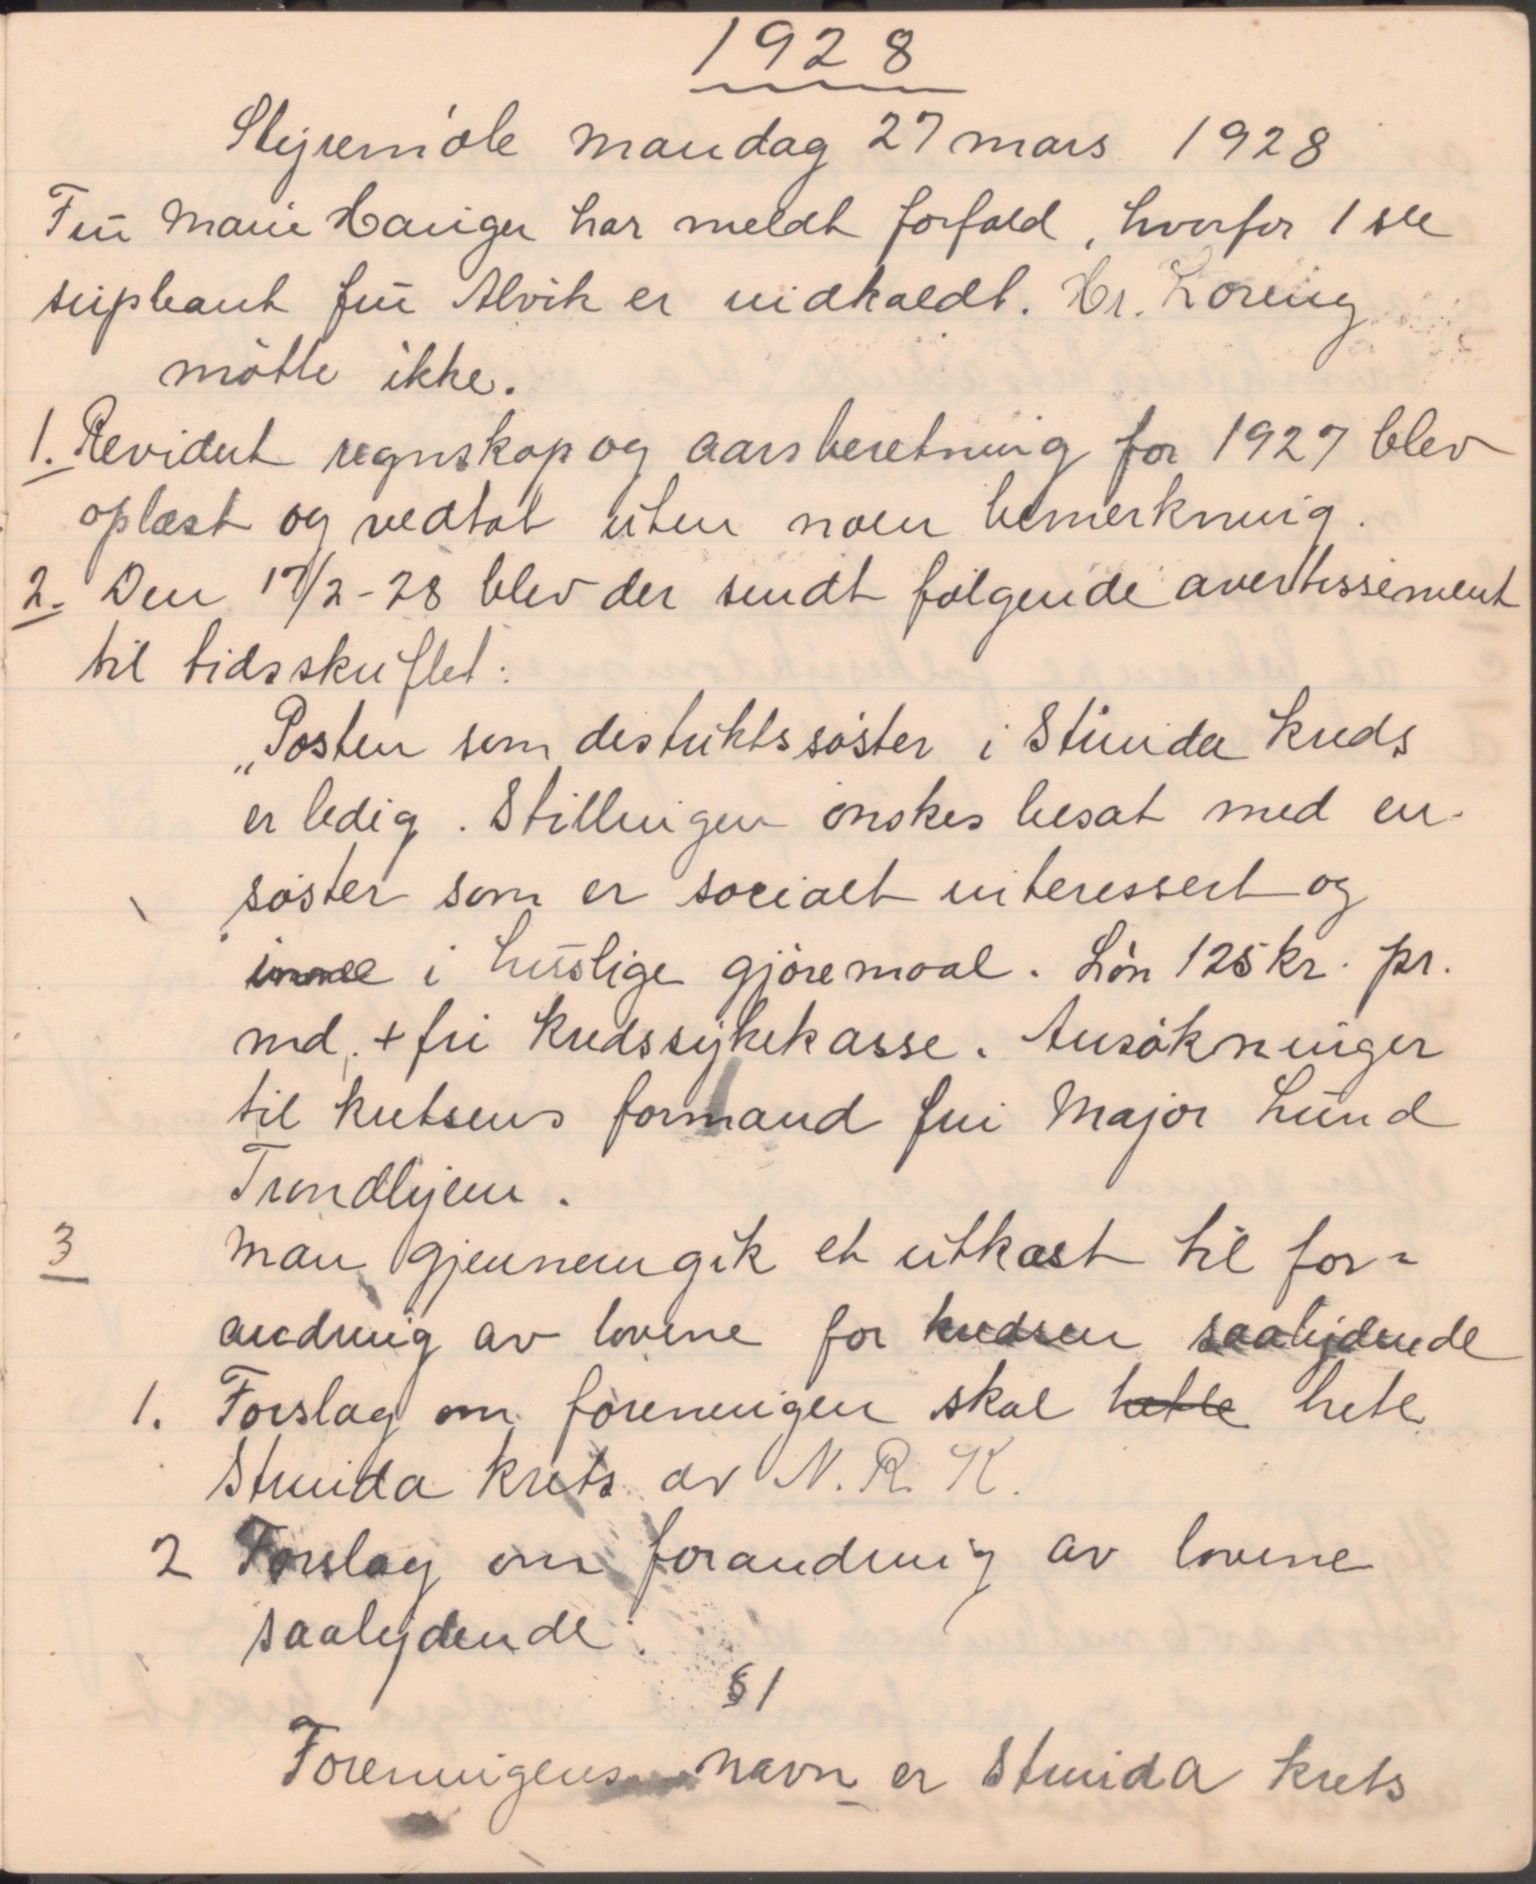 1928
Styremöte Mandag 27 mars 1928
Frü Marie Hauger har meldt forfald, hvorfor 1ste
supleant frü Alvik er indkaldt. Hr. Loreng
mötte ikke.
1. Revidert regnskap og aarsberetning for 1927 blev
oplæst og vedtat uten noen bemerkning.
2. Den 17/2-28 blev der sendt følgende avertissement
til tidsskriftet:
„Posten som distriktssöster i Strinda kreds
er ledig. Stillingen önskes besat med en
söster som er socialt interessert og
i hüslige gjöremaal. Lön 125 kr. pr.
md. + fri kredssykekasse. Ansökninger
til kretsens formand frü Major Lünd
Trondhjem.
3 Man gjennemgik et utkast til for=
andring av lovene for kredsen saalydende
1. Forslag om foreningen skal hette hete
Strinda krets av N. R. K.
2 Forslag om forandring av lovene
saalydende:
§ 1
Foreningens navn er Strinda krets